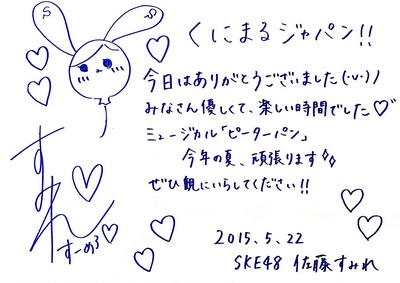 くにまるジャパン!!
今日はありがとうございました(·∪·)ノ
みなさん優しくて、楽しい時間でした♡
ミュージカル「ピーターパン」
今年の夏、頑張ります
ぜひ観にいらしてください!!
すみれ
すーめろ
2015.5.22
SKE48 佐藤すみれ